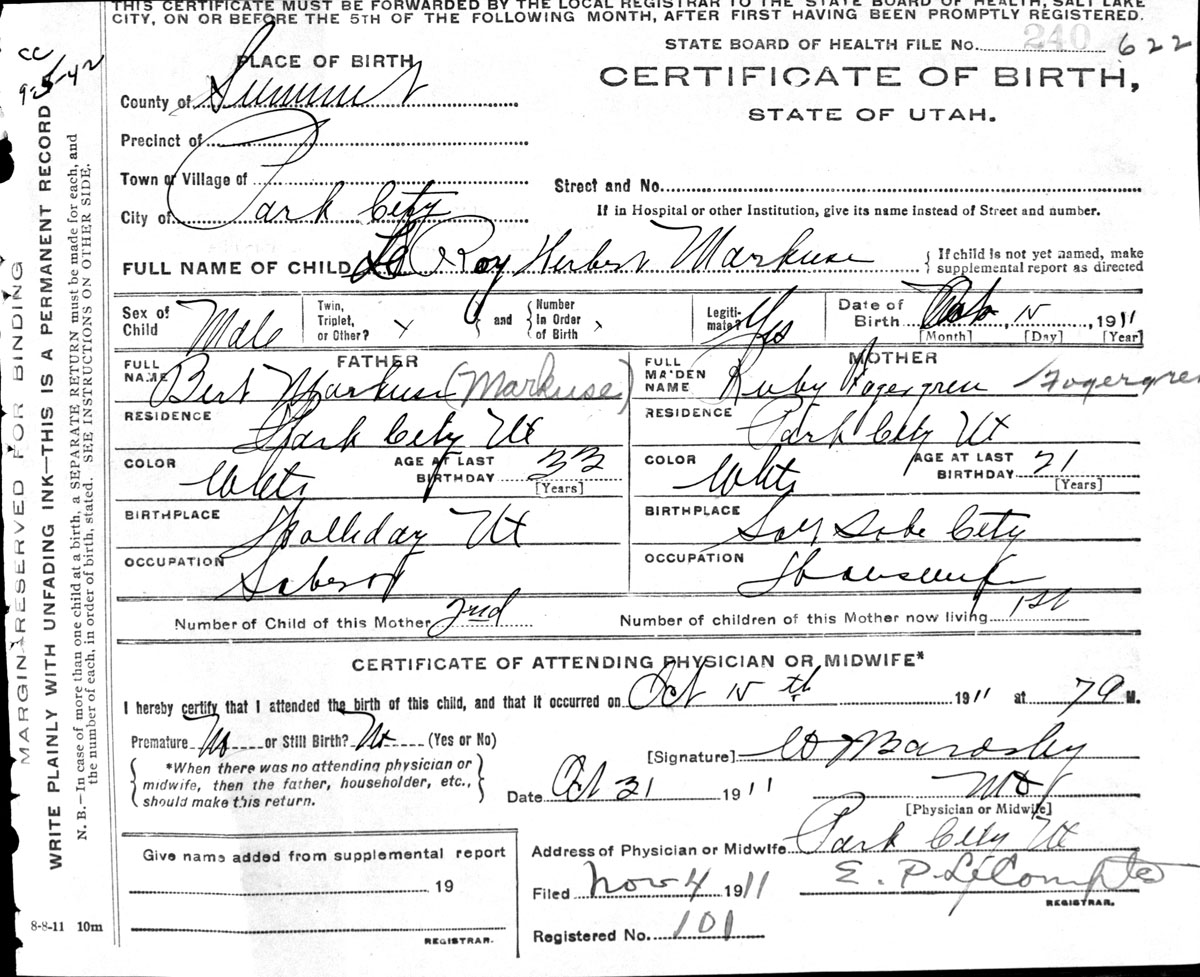 THIS CERTIFICATE MUST BE FORWARDED BY THE LOCAL REGISTRAR TO THE STATE BOARD OF HEALTH, SALT LAKE
CITY, ON OR BEFORE THE 5TH OF THE FOLLOWING MONTH, AFTER FIRST HAVING BEEN PROMPTLY REGISTERED.
CC
9-5-42
STATE BOARD OF HEALTH FILE No. 240 622
PLACE OF BIRTH
CERTIFICATE OF BIRTH,
STATE OF UTAH.
County of Summit
Precinct of
Town or Village of
City of Park City
Street and No.
If in Hospital or other Institution, give its name instead of Street and number.
FULL NAME OF CHILD Le Roy Herbert Markuse { If child is not yet named, make supplemental report as directed
Sex of Child Male
Twin, Triplet, or Other? x } and { Number In Order of Birth x
Legitimate? Yes
Date of Birth 15, 1911
[Month] [Day] [Year]
FATHER
FULL NAME Bert Markuse (Markuse)
RESIDENCE Park City Ut
COLOR White AGE AT LAST BIRTHDAY 33 [Years]
BIRTHPLACE Holliday Ut
OCCUPATION
MOTHER
FULL MAIDEN NAME Ruby Fogergren /Fogergren
RESIDENCE Park City Ut
COLOR White AGE AT LAST BIRTHDAY 21 [Years]
BIRTHPLACE Salt Lake City
OCCUPATION Housewife
Number of Child of this Mother 2nd Number of children of this Mother now living 1st
CERTIFICATE OF ATTENDING PHYSICIAN OR MIDWIFE*
I hereby certify that I attended the birth of this child, and that it occurred on Oct 15th 1911 at 7 A M.
Premature No or Still Birth? No (Yes or No)
{ *When there was no attending physician or midwife, then the father, householder, etc., should make this return. }
[Signature] Bardsley
Date Oct 31 1911 MD
[Physician or Midwife]
Address of Physician or Midwife Park City Ut
Give name added from supplemental report
19
REGISTRAR.
Filed Nov 4 1911 E. P. LeCompte
REGISTRAR.
Registered No. 101
8-8-11 10m
MARGIN RESERVED FOR BINDING
WRITE PLAINLY WITH UNFADING INK—THIS IS A PERMANENT RECORD
N. B.—In case of more than one child at a birth, a SEPARATE RETURN must be made for each, and
the number of each, in order of birth, stated. SEE INSTRUCTIONS ON OTHER SIDE.